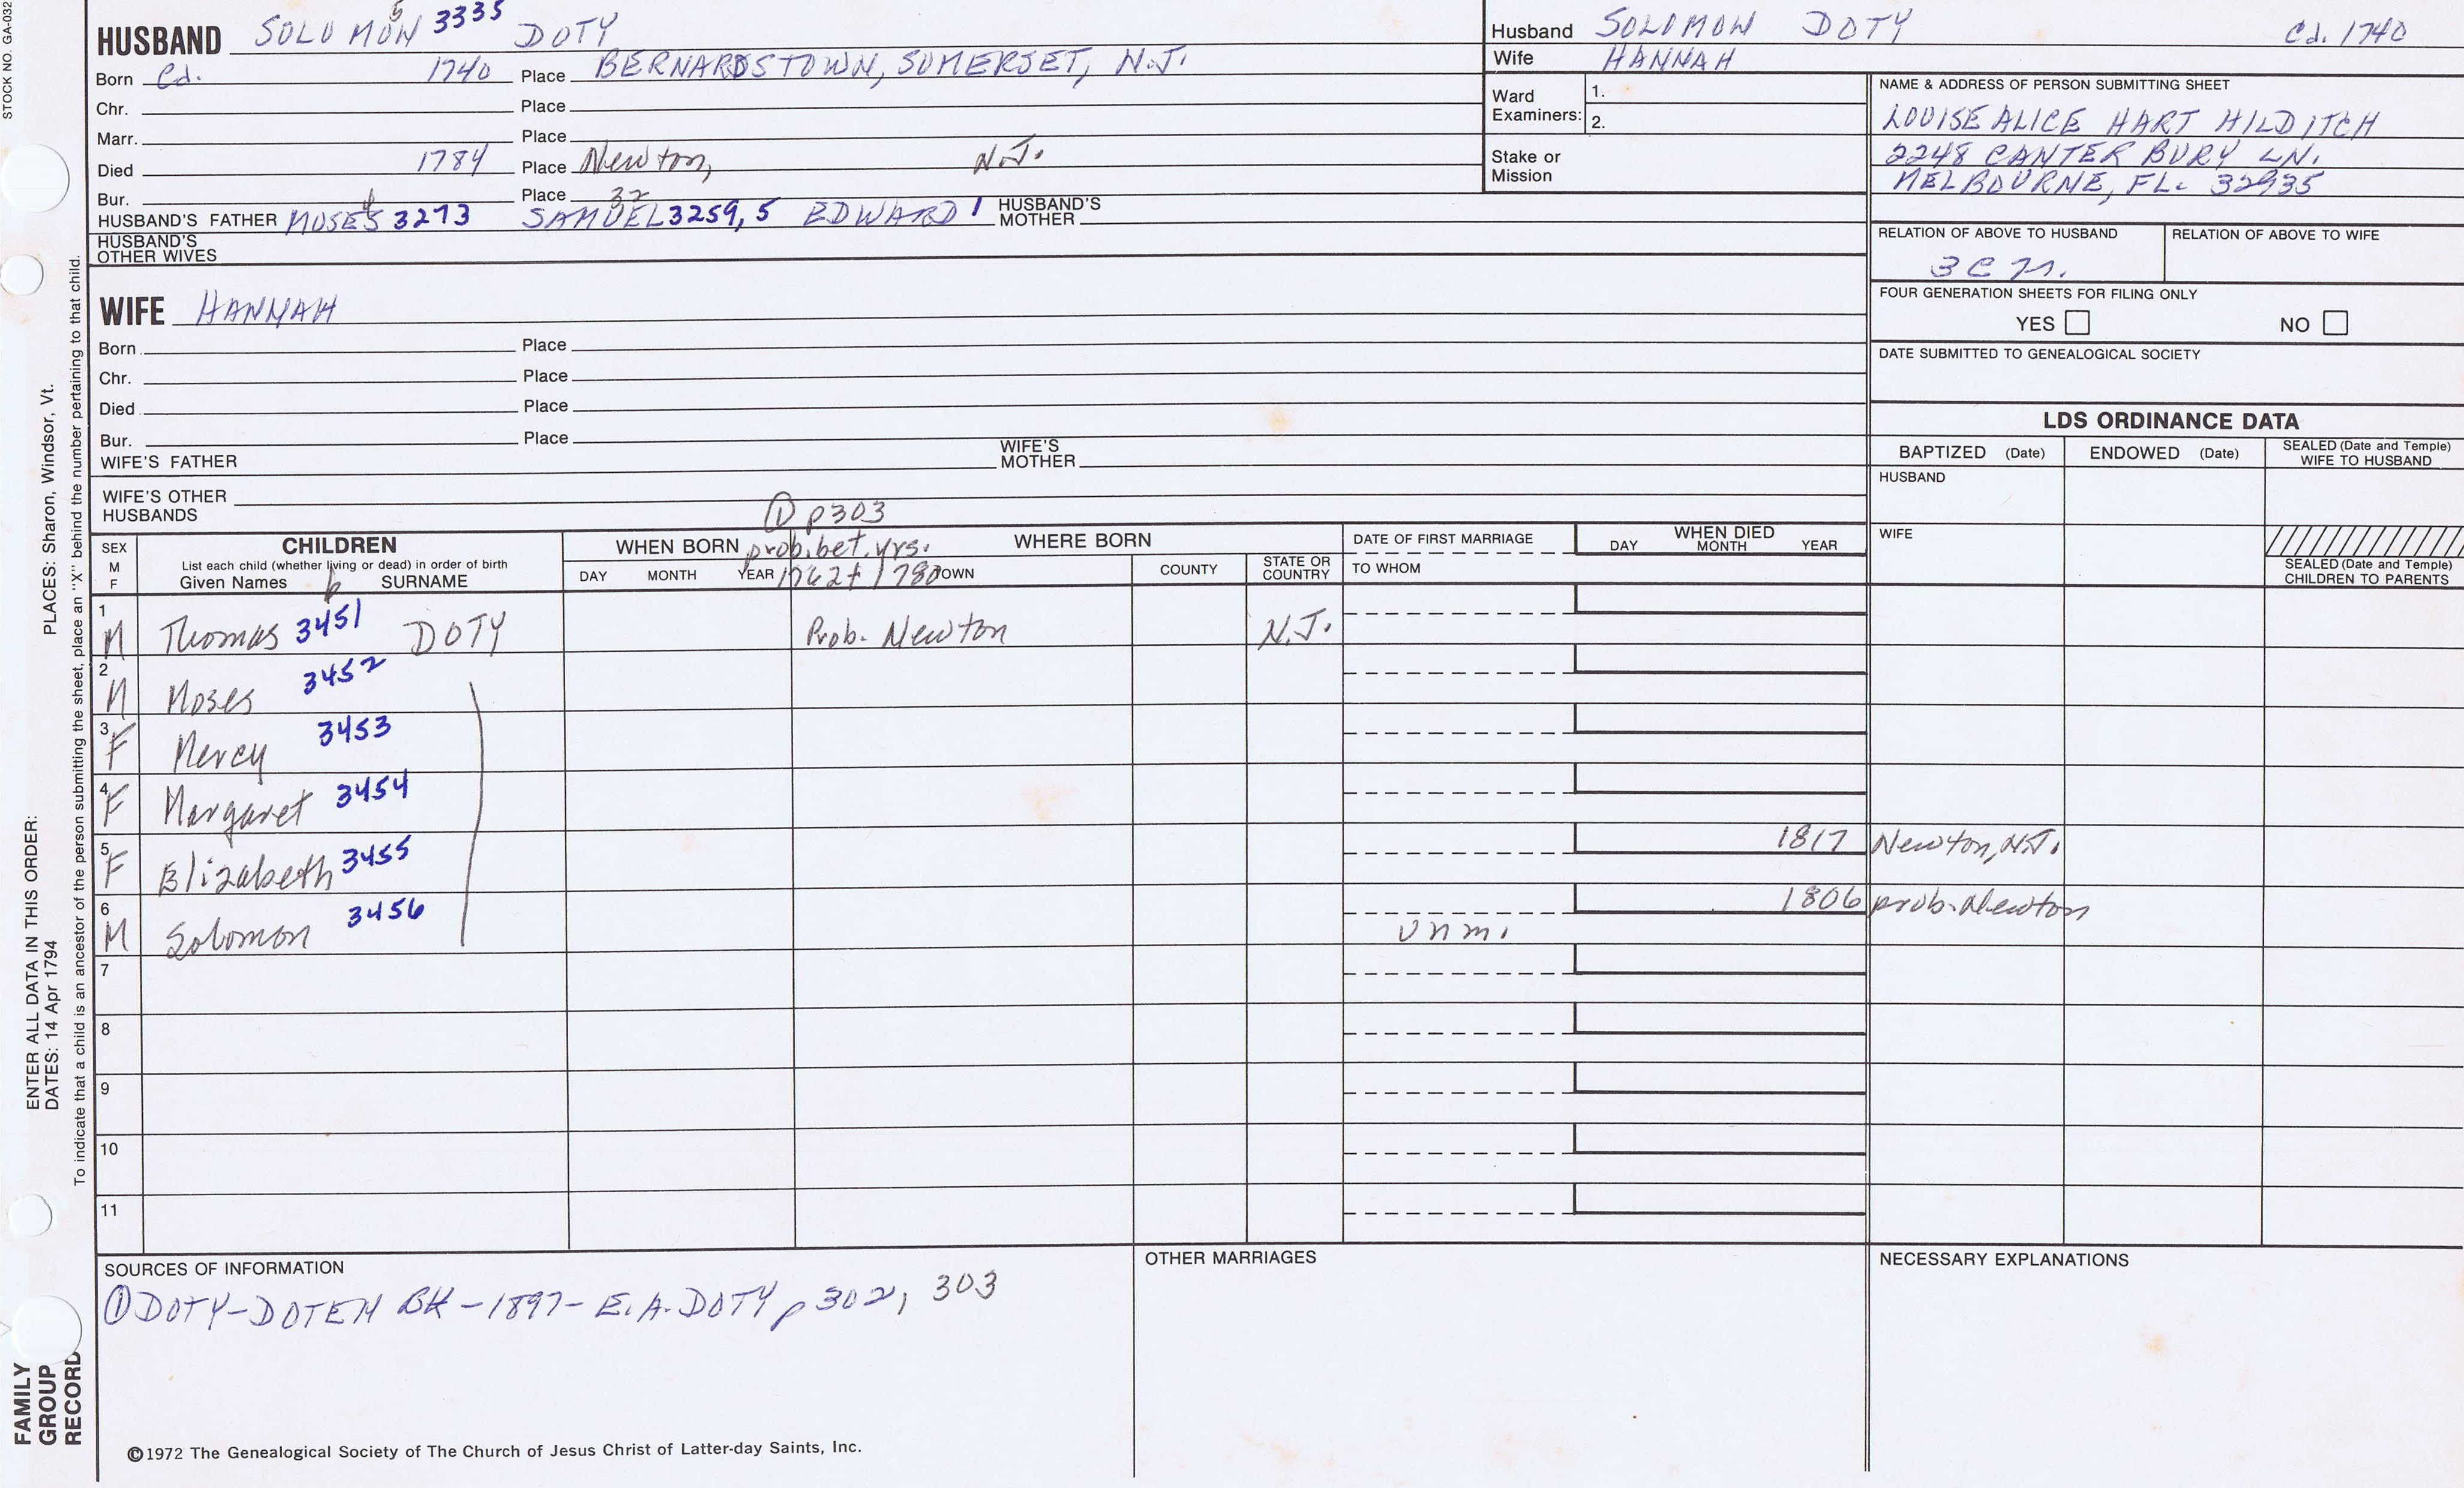 STOCK NO. GA-032
PLACES: Sharon, Windsor, Vt.
ENTER ALL DATA IN THIS ORDER:
DATES: 14 Apr 1794
To indicate that a child is an ancestor of the person submitting the sheet, place an "X" behind the number pertaining to that child.
FAMILY
GROUP
RECORD
HUSBAND SOLOMON 5 3335 DOTY
Born Cd. 1740 Place BERNARDSTOWN, SOMERSET, N.J.
Chr. Place
Marr. Place
Died 1784 Place Newton, N.J.
Bur. Place
HUSBAND'S FATHER MOSES 4 3273 SAMUEL 32 3259, 5 EDWARD 1 HUSBAND'S MOTHER
HUSBAND'S
OTHER WIVES
WIFE HANNAH
Born Place
Chr. Place
Died Place
Bur. Place
WIFE'S FATHER WIFE'S MOTHER
WIFE'S OTHER
HUSBANDS
Husband SOLOMON DOTY Cd. 1740
Wife HANNAH
Ward
Examiners: 1.
2.
Stake or
Mission
NAME & ADDRESS OF PERSON SUBMITTING SHEET
LOUISE ALICE HART HILDITCH
2248 CANTERBURY LN.
MELBOURNE, FL. 32935
RELATION OF ABOVE TO HUSBAND RELATION OF ABOVE TO WIFE
FOUR GENERATION SHEETS FOR FILING ONLY
YES NO
DATE SUBMITTED TO GENEALOGICAL SOCIETY
LDS ORDINANCE DATA
BAPTIZED (Date) ENDOWED (Date) SEALED (Date and Temple)
WIFE TO HUSBAND
HUSBAND
WIFE
SEALED (Date and Temple)
CHILDREN TO PARENTS
① p303
SEX
M
F
CHILDREN
List each child (whether living or dead) in order of birth
Given Names 6 SURNAME
WHEN BORN prob. bet. yrs. WHERE BORN
DAY MONTH YEAR 1762 + 1780 TOWN COUNTY STATE OR
COUNTRY
DATE OF FIRST MARRIAGE
TO WHOM
WHEN DIED
DAY MONTH YEAR
1 M Thomas 3451 DOTY Prob. Newton N.J.
2 M Moses 3452
3 F Mercy 3453
4 F Margaret 3454
5 F Elizabeth 3455 1817 Newton, N.J.
6 M Solomon 3456 unm. 1806 prob. Newton
7
8
9
10
11
SOURCES OF INFORMATION
① DOTY-DOTEN BK - 1897 - E.A. DOTY p 302, 303
OTHER MARRIAGES
NECESSARY EXPLANATIONS
©1972 The Genealogical Society of The Church of Jesus Christ of Latter-day Saints, Inc.